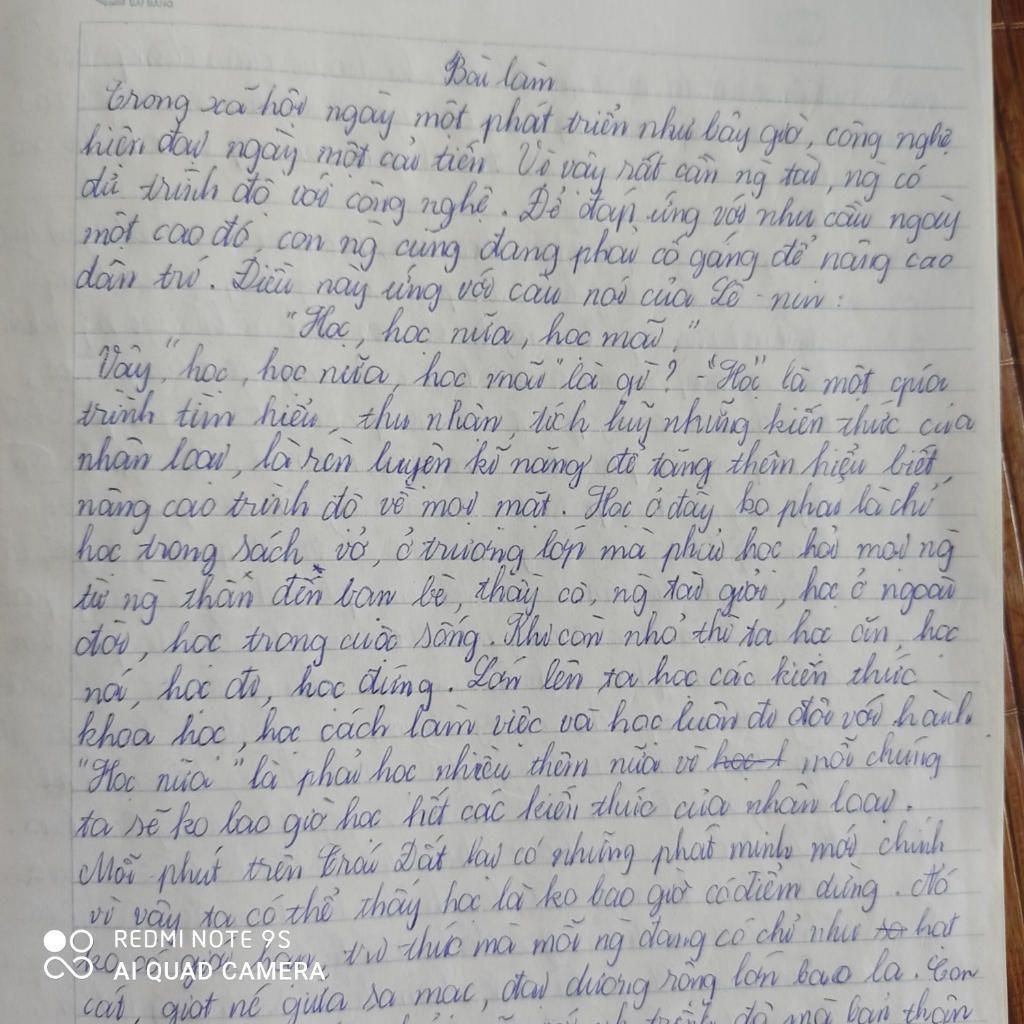 Bài làm
Trong xã hội ngày một phát triển như bây giờ, công nghệ
hiện đại ngày một cải tiến. Vì vậy rất cần ng tài, ng có
đủ trình độ với công nghệ. Để đáp ứng với nhu cầu ngày
một cao đó, con ng cũng đang phải cố gắng để nâng cao
dân trí. Điều này ứng với câu nói của Lê-nin:
"Học, học nữa, học mãi."
Vậy "học, học nữa, học mãi" là gì? - "Học" là một quá
trình tìm hiểu, thu nhận, tích luỹ những kiến thức của
nhân loại, là rèn luyện kĩ năng để tăng thêm hiểu biết,
nâng cao trình độ về mọi mặt. Học ở đây ko phải là chỉ
học trong sách vở, ở trường lớp mà phải học hỏi mọi ng
từ ng thân đến bạn bè, thầy cô, ng tài giỏi, học ở ngoài
đời, học trong cuộc sống. Khi còn nhỏ thì ta học ăn, học
nói, học đi, học đứng. Lớn lên ta học các kiến thức
khoa học, học cách làm việc và học luôn đi đôi với hành.
"Học nữa" là phải học nhiều thêm nữa vì mỗi chúng
ta sẽ ko bao giờ học hết các kiến thức của nhân loại.
Mỗi phút trên Trái Đất lại có những phát minh mới chính
vì vậy ta có thể thấy học là ko bao giờ có điểm dừng. Nó
ko có giới hạn, tri thức mà mỗi ng đang có chỉ như hạt
cát, giọt nc giữa sa mạc, đại dương rộng lớn bao la. Con
trình độ mà bản thân
REDMI NOTE 9S
AI QUAD CAMERA